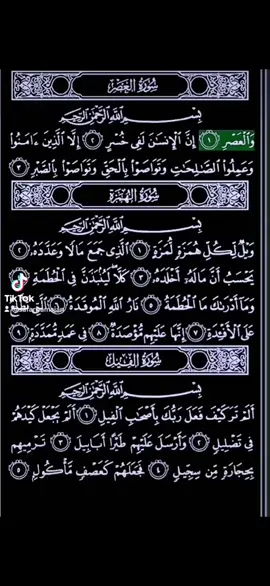 سُورَةُ العَصْرِ
بِسْمِ اللَّهِ الرَّحْمَٰنِ الرَّحِيمِ
وَالْعَصْرِ ١ إِنَّ الْإِنسَانَ لَفِي خُسْرٍ ٢ إِلَّا الَّذِينَ ءَامَنُوا
وَعَمِلُوا الصَّالِحَاتِ وَتَوَاصَوْا بِالْحَقِّ وَتَوَاصَوْا بِالصَّبْرِ ٣
سُورَةُ الهُمَزَةِ
بِسْمِ اللَّهِ الرَّحْمَٰنِ الرَّحِيمِ
وَيْلٌ لِّكُلِّ هُمَزَةٍ لُّمَزَةٍ ١ الَّذِي جَمَعَ مَالًا وَعَدَّدَهُ ٢
يَحْسَبُ أَنَّ مَالَهُ أَخْلَدَهُ ٣ كَلَّا لَيُنبَذَنَّ فِي الْحُطَمَةِ ٤
وَمَا أَدْرَاكَ مَا الْحُطَمَةُ ٥ نَارُ اللَّهِ الْمُوقَدَةُ ٦
TikTok
عَلَى الْأَفْئِدَةِ ٧ إِنَّهَا عَلَيْهِم مُّؤْصَدَةٌ ٨ فِي عَمَدٍ مُّمَدَّدَةٍ ٩
سُورَةُ الفِيلِ
بِسْمِ اللَّهِ الرَّحْمَٰنِ الرَّحِيمِ
أَلَمْ تَرَ كَيْفَ فَعَلَ رَبُّكَ بِأَصْحَابِ الْفِيلِ ١ أَلَمْ يَجْعَلْ كَيْدَهُمْ
فِي تَضْلِيلٍ ٢ وَأَرْسَلَ عَلَيْهِمْ طَيْرًا أَبَابِيلَ ٣ تَرْمِيهِم
بِحِجَارَةٍ مِّن سِجِّيلٍ ٤ فَجَعَلَهُمْ كَعَصْفٍ مَّأْكُولٍ ٥